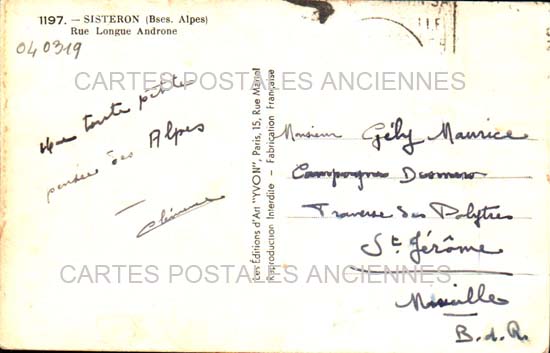 1197. — SISTERON (Bses. Alpes)
Rue Longue Androne
040319
CARTES POSTALES ANCIENNES
Une toute petite
pensée des Alpes
Les Editions d'Art "YVON", Paris, 15, Rue Martel
Reproduction Interdite - Fabrication Française
Monsieur Gély Maurice
Campagne
Traverse des
St Jérôme
Marseille
B.d.R.
CARTES POSTALES ANCIENNES